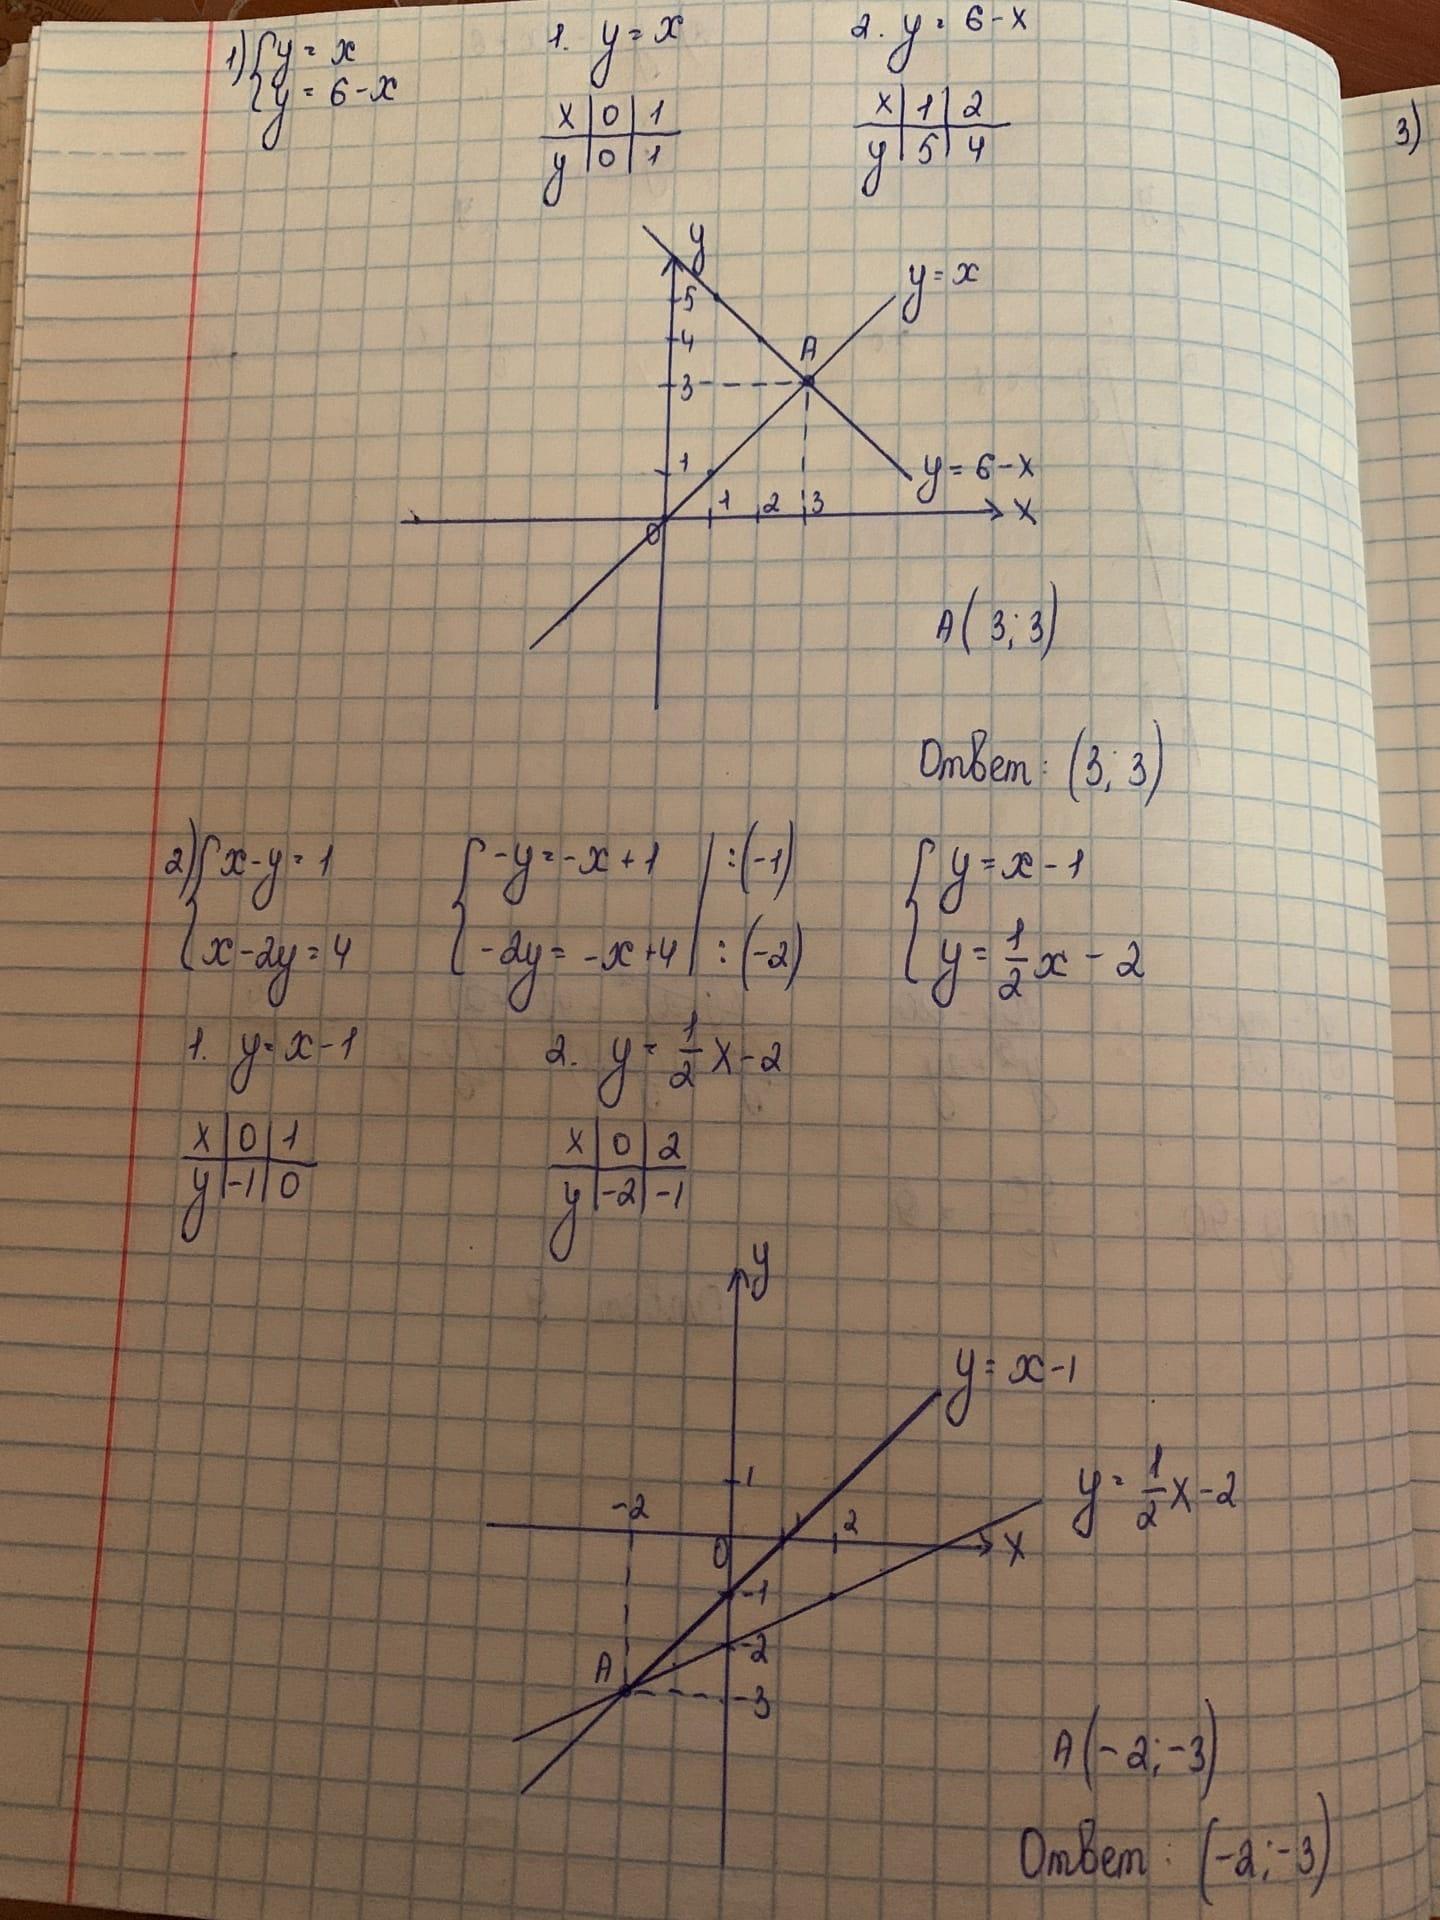 1) { y = x
{ y = 6 - x
1. y = x
x | 0 | 1
y | 0 | 1
2. y = 6 - x
x | 1 | 2
y | 5 | 4
3)
y
5
4
3
1
0
1 2 3
x
A
y = x
y = 6 - x
A(3; 3)
Ответ: (3; 3)
2) { x - y = 1
{ x - 2y = 4
{ -y = -x + 1 | :(-1)
{ -2y = -x + 4 | :(-2)
{ y = x - 1
{ y = 1/2 x - 2
1. y = x - 1
x | 0 | 1
y | -1 | 0
2. y = 1/2 x - 2
x | 0 | 2
y | -2 | -1
y
y = x - 1
y = 1/2 x - 2
1
-2
0
1
2
x
-1
-2
-3
A
A(-2; -3)
Ответ: (-2; -3)